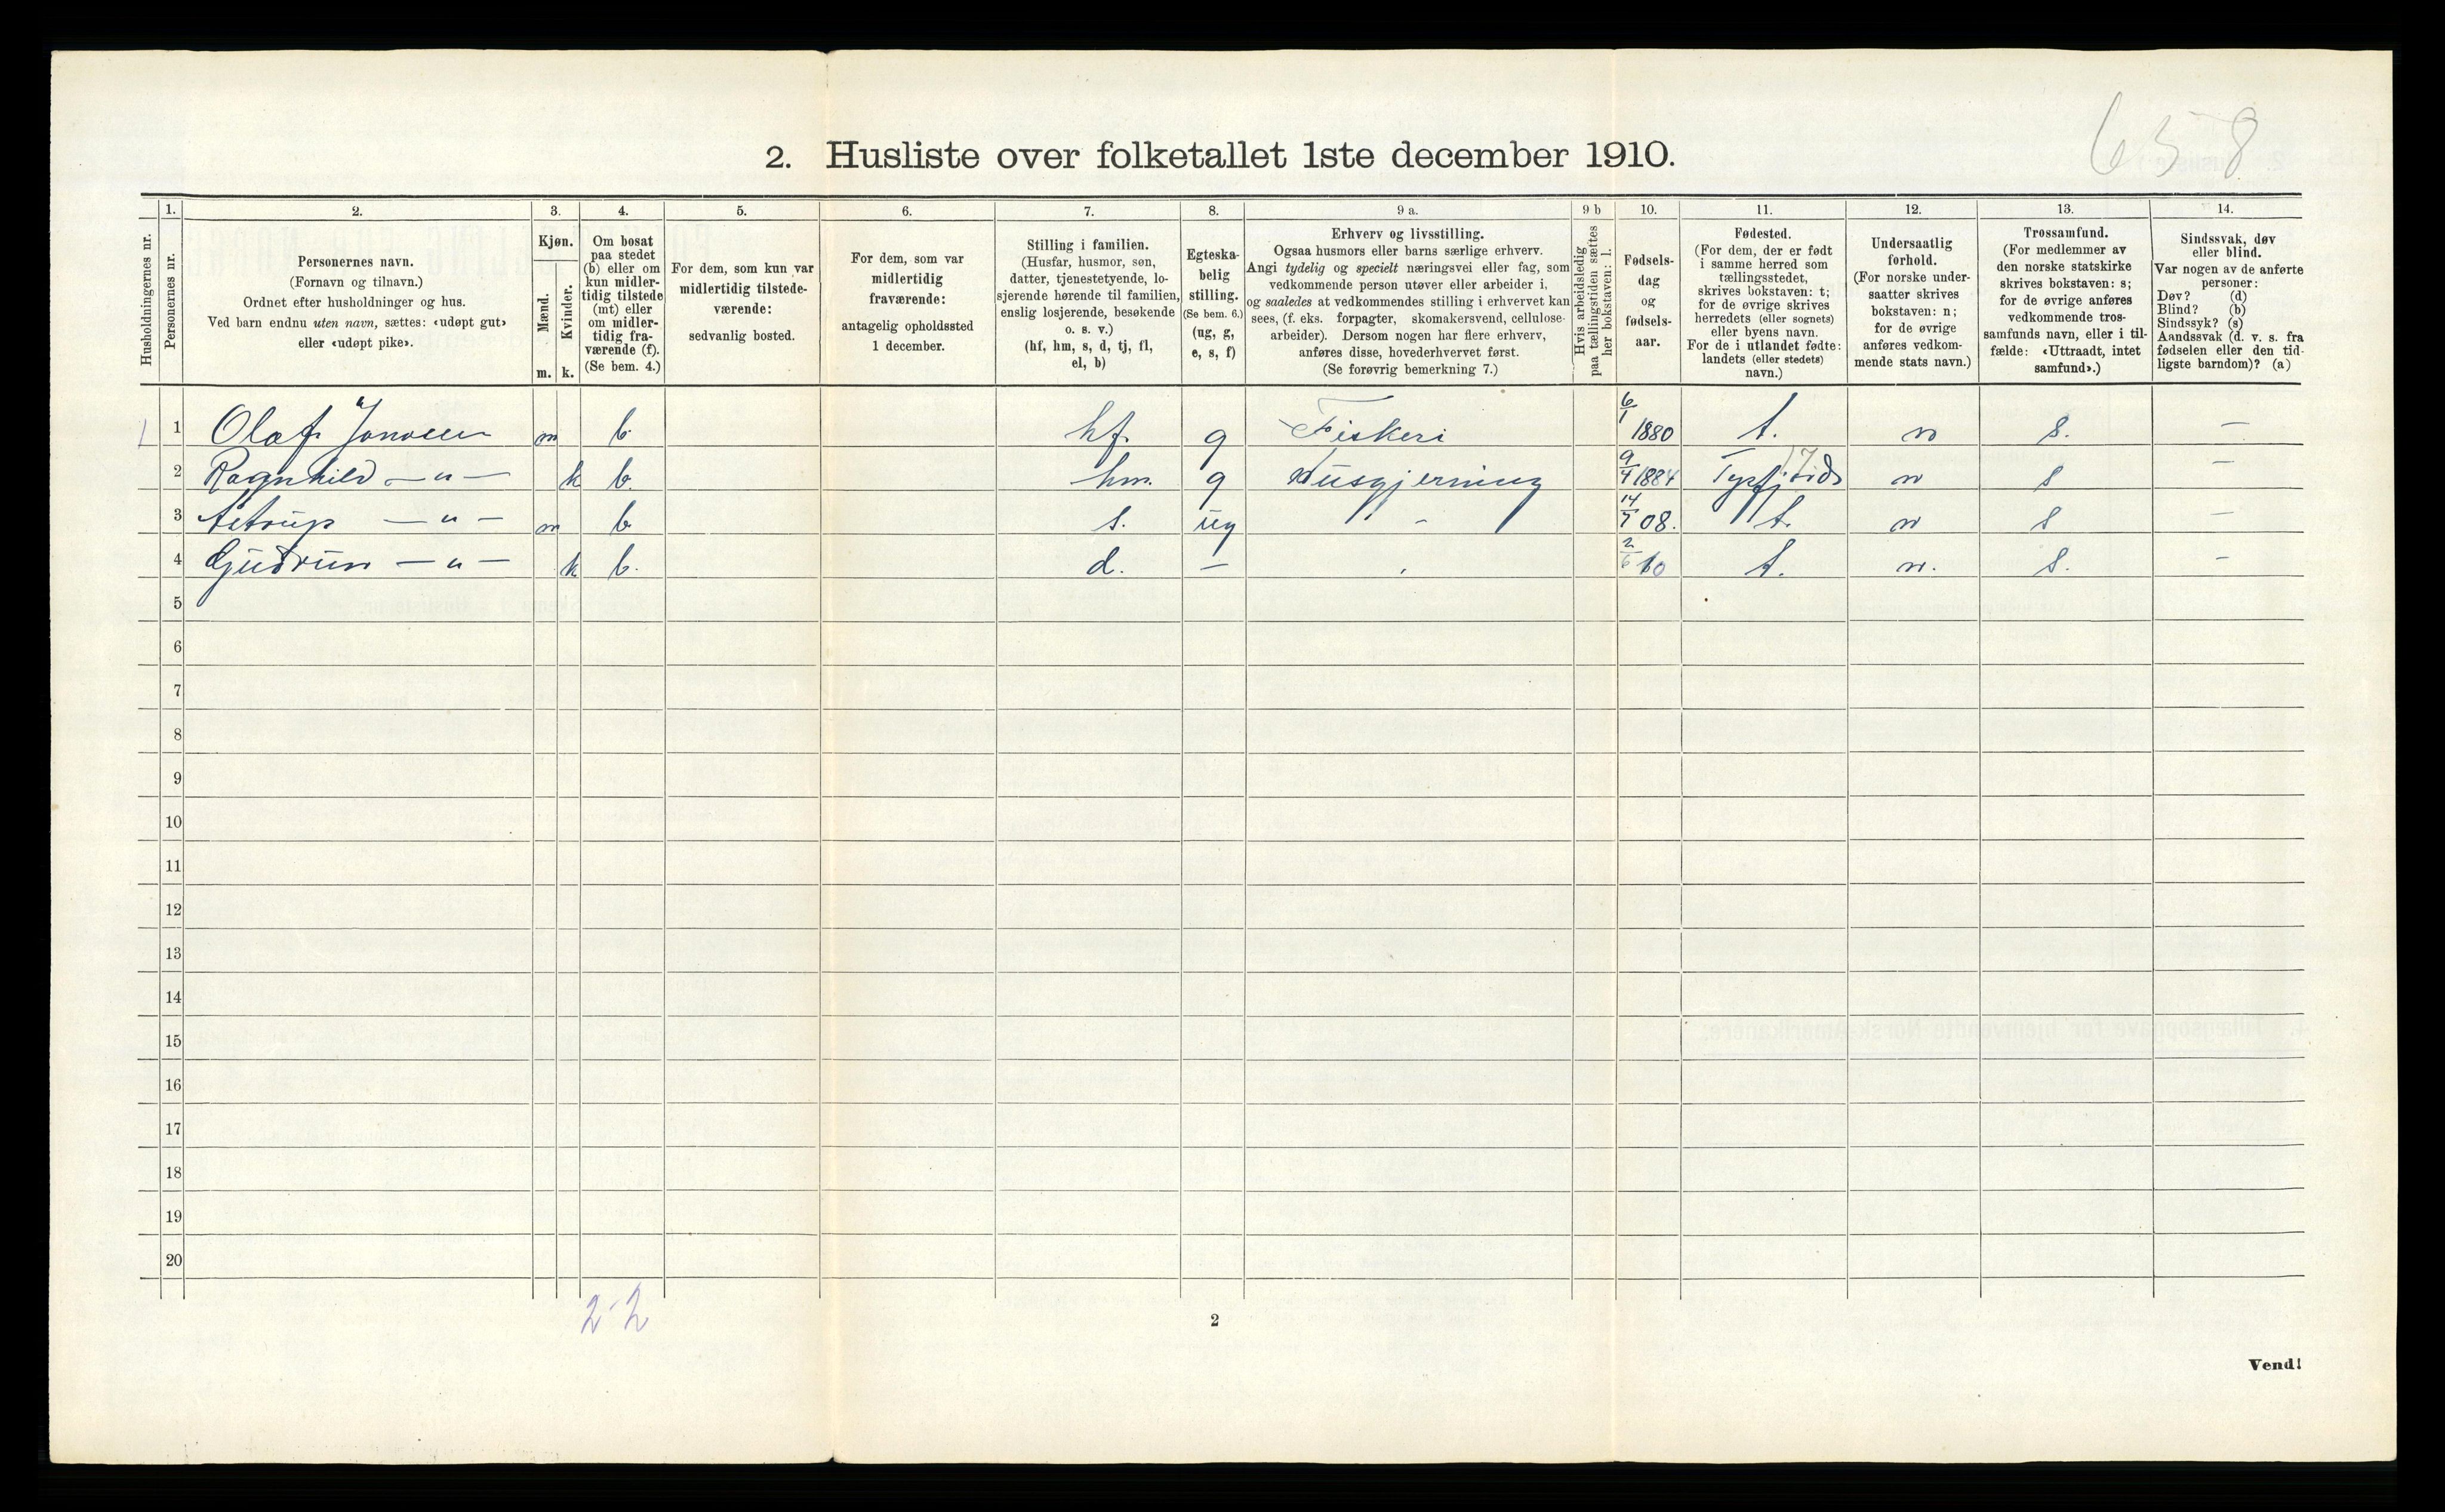 658
2. Husliste over folketallet 1ste december 1910.
Husholdningernes nr.
1.
Personernes nr.
2.
Personernes navn.
(Fornavn og tilnavn.)
Ordnet efter husholdninger og hus.
Ved barn endnu uten navn, sættes: «udøpt gut»
eller «udøpt pike».
3.
Kjøn.
Mænd.
Kvinder.
m. k.
4.
Om bosat
paa stedet
(b) eller om
kun midler-
tidig tilstede
(mt) eller
om midler-
tidig fra-
værende (f).
(Se bem. 4.)
5.
For dem, som kun var
midlertidig tilstede-
værende:
sedvanlig bosted.
6.
For dem, som var
midlertidig
fraværende:
antagelig opholdssted
1 december.
7.
Stilling i familien.
(Husfar, husmor, søn,
datter, tjenestetyende, lo-
sjerende hørende til familien,
enslig losjerende, besøkende
o. s. v.)
(hf, hm, s, d, tj, fl,
el, b)
8.
Egteska-
belig
stilling.
(Se bem. 6.)
(ug, g,
e, s, f)
9 a.
Erhverv og livsstilling.
Ogsaa husmors eller barns særlige erhverv.
Angi tydelig og specielt næringsvei eller fag, som
vedkommende person utøver eller arbeider i,
og saaledes at vedkommendes stilling i erhvervet kan
sees, (f. eks. forpagter, skomakersvend, cellulose-
arbeider). Dersom nogen har flere erhverv,
anføres disse, hovederhvervet først.
(Se forøvrig bemerkning 7.)
9 b
Hvis arbeidsledig
paa tællingstiden sættes
her bokstaven: l.
10.
Fødsels-
dag
og
fødsels-
aar.
11.
Fødested.
(For dem, der er født
i samme herred som
tællingsstedet,
skrives bokstaven: t;
for de øvrige skrives
herredets (eller sognets)
eller byens navn.
For de i utlandet fødte:
landets (eller stedets)
navn.)
12.
Undersaatlig
forhold.
(For norske under-
saatter skrives
bokstaven: n;
for de øvrige
anføres vedkom-
mende stats navn.)
13.
Trossamfund.
(For medlemmer av
den norske statskirke
skrives bokstaven: s;
for de øvrige anføres
vedkommende tros-
samfunds navn, eller i til-
fælde: «Uttraadt, intet
samfund».)
14.
Sindssvak, døv
eller blind.
Var nogen av de anførte
personer:
Døv? (d)
Blind? (b)
Sindssyk? (s)
Aandssvak (d. v. s. fra
fødselen eller den tid-
ligste barndom)? (a)
1 1 Olaf m b. hf. g Fiskeri 6/1 1880 t. n s. —
2 Ragnhild —"— k b. hm. g Husgjerning 9/4 1884 n s —
3 —"— m b. s. ug - 14/7 08. t. n s —
4 Gudrun —"— k b. d. — 2/6 10 t. n. s. —
5
6
7
8
9
10
11
12
13
14
15
16
17
18
19
20
2-2
2
Vend!